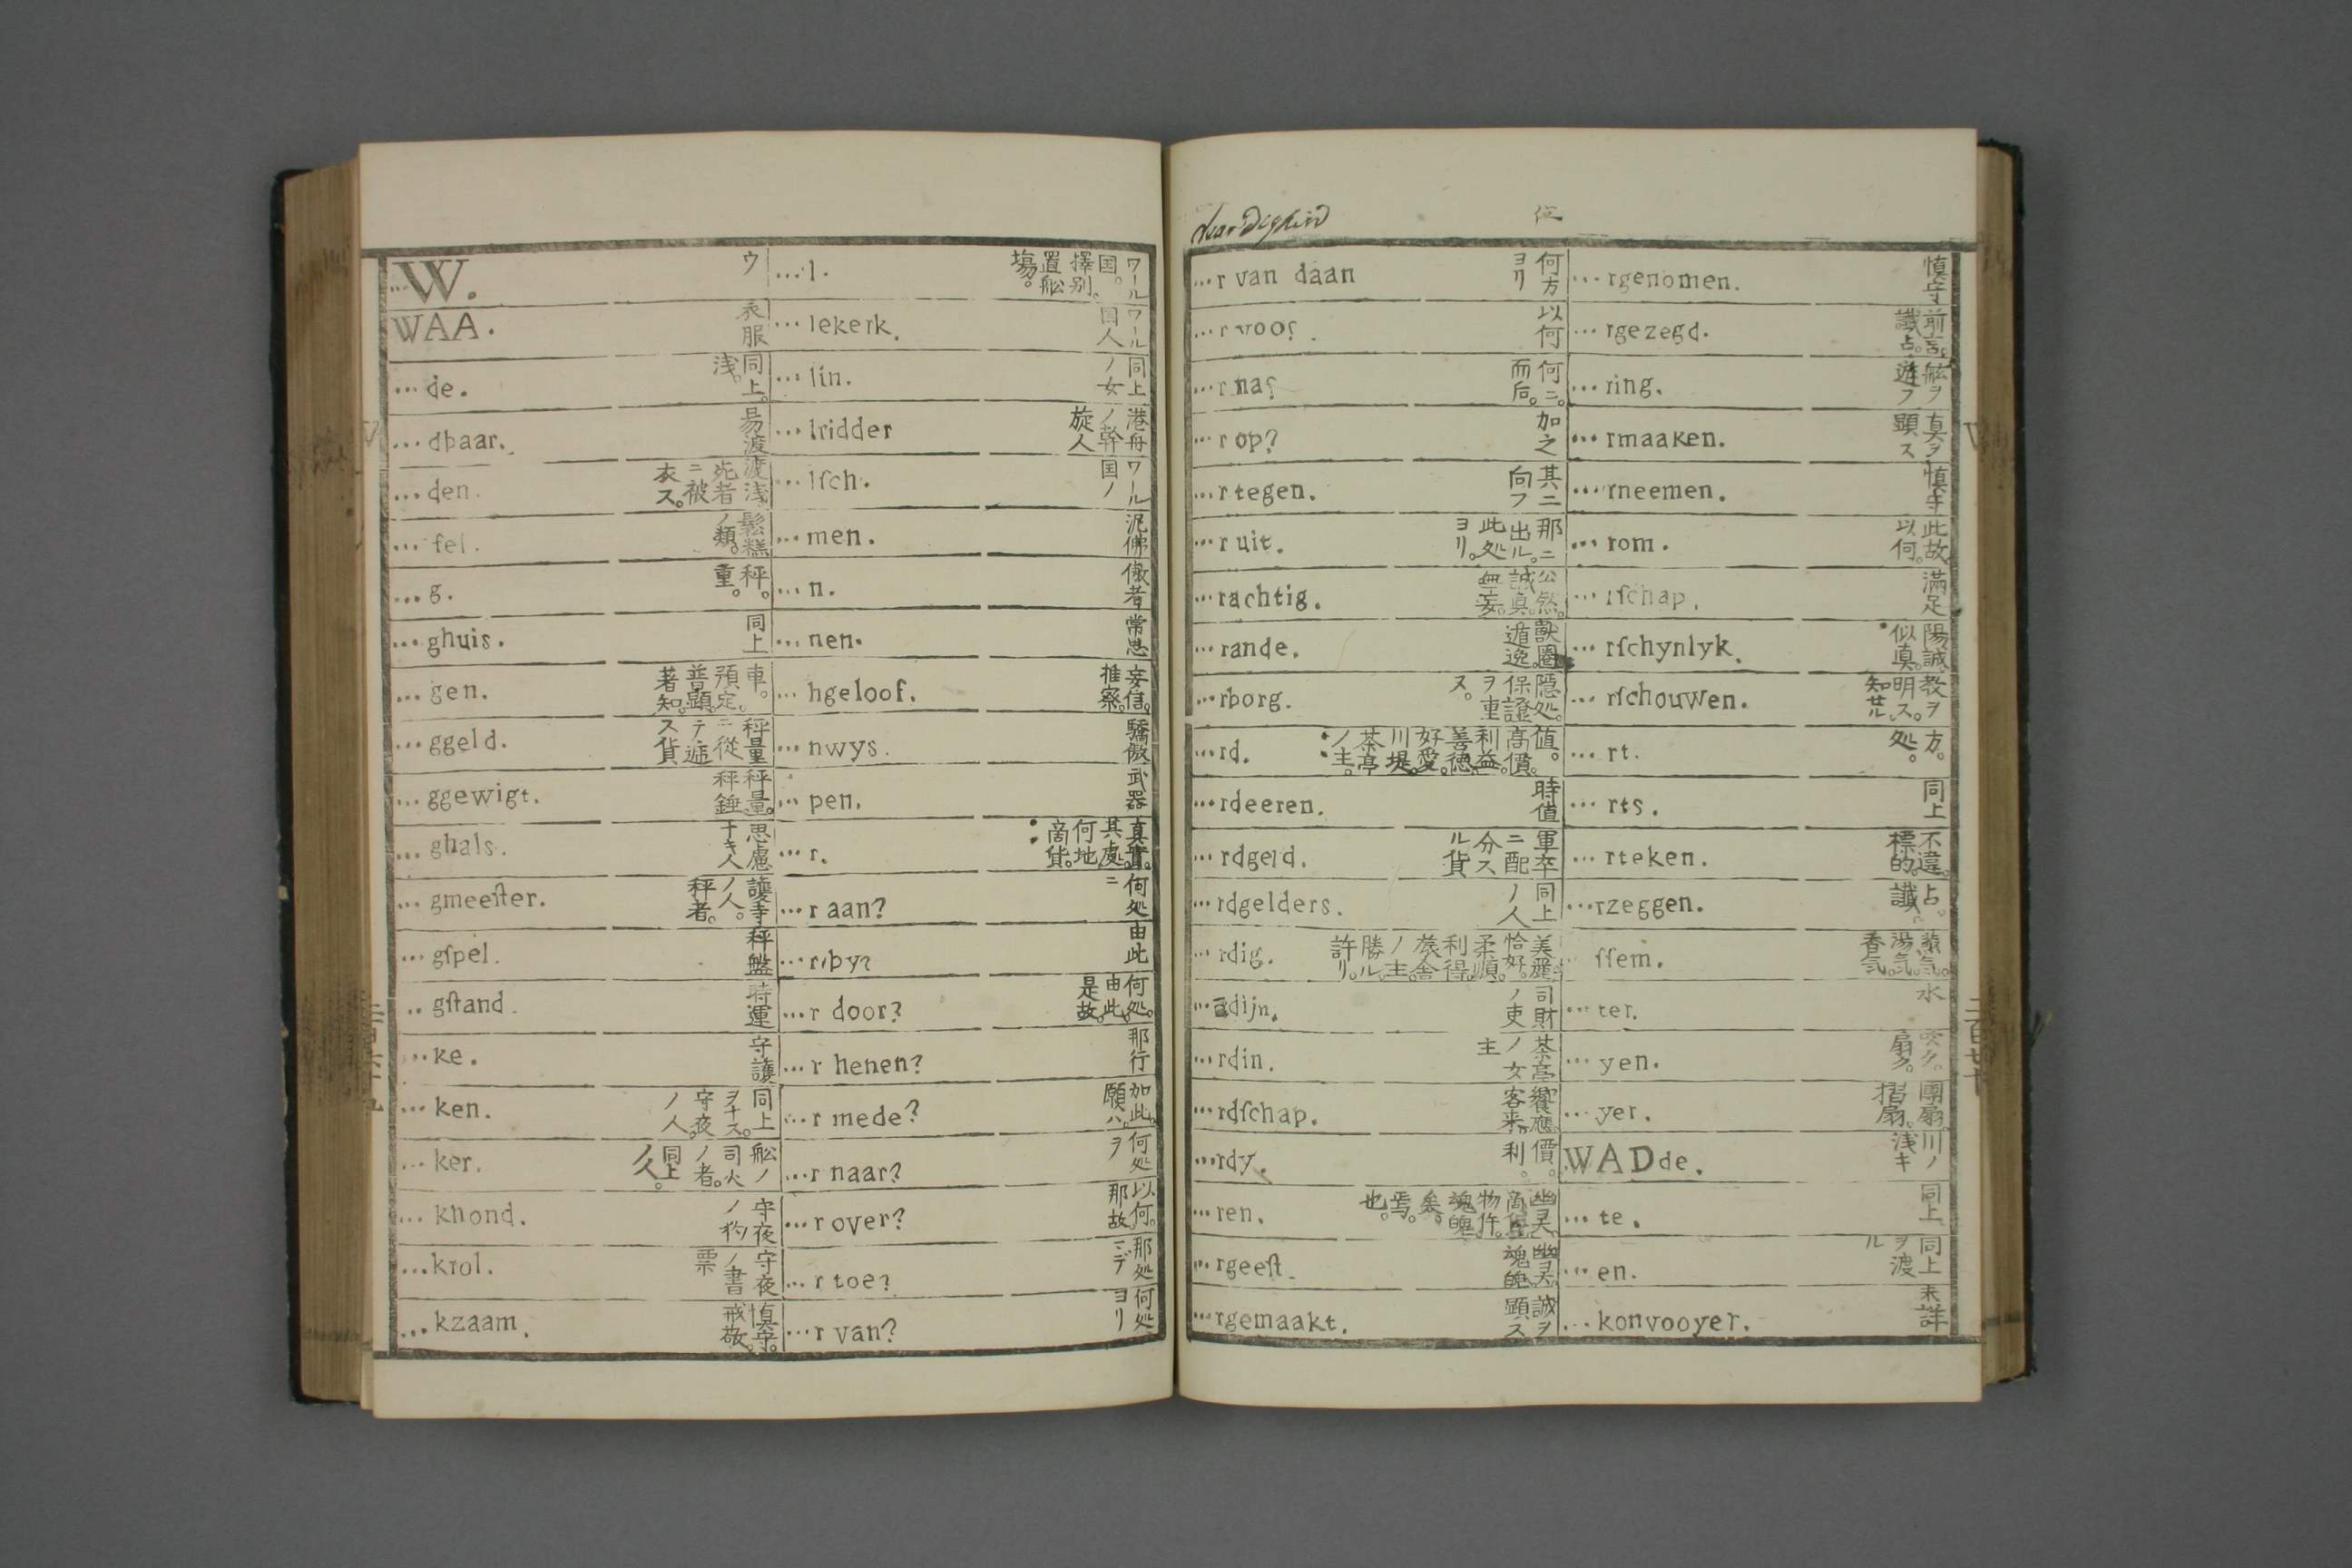 W. ウ
WAA. 衣服
...de. 同上。浅。
...dbaar. 易渡
...den. 渡浅 死者ニ被衣ス。
...fel. 鬆糕ノ類。
...g. 秤。重。
...ghuis. 同上
...gen. 車。預定。普顕。著知。
...ggeld. 秤量ニ従テ逓ス貨
...ggewigt. 秤量。秤錘
...ghals. 思慮ナキ人
...gmeeſter. 護寺ノ人。秤者。
...gſpel. 秤盤
...gſtand. 時運
...ke. 守護
...ken. 同上ヲナス。守夜ノ人。
...ker. 舩ノ司火ノ者。同上ノ人。
...khond. 守夜ノ豹
...krol. 守夜ノ書票
...kzaam. 慎守。戒敬。
...l. ワール国。擇别。置舩塲。
...lekerk. ワール国人
...lin. 同上ノ女
...lridder 港舟ノ幹旋人
...lſch. ワール国ノ
...men. 泥佛
...n. 傲者
...nen. 常思
...hgeloof. 妄信。推察。
...nwys. 驕傲
...pen. 武器
...r. 真實。其處。何地。啇貨。
...r aan? 何処ニ
...r by? 由此
...r door? 何処。由此。是故。
...r henen? 那行
...r mede? 加此。願ハ。
...r naar? 何処ヲ
...r over? 以何。那故
...r toe? 那処ミデ
...r van? 何処ヨリ
dear Digheid
位
...r van daan 何方ヨリ
...r voor? 以何
...r na? 何ニ。而后。
...r op? 加之
...r tegen. 其ニ向フ
...r uit. 那ニ出ル。此処ヨリ。
...rachtig. 公然。誠真。無妄。
...rande. 獣圏。遁逸。
...rborg. 隠処。保證ヲ重ヌ。
...rd. 値。高價。利益。善徳。好愛。川堤。茶亭ノ主。
...rdeeren. 時値
...rdgeld. 軍卒ニ配分スル貨
...rdgelders. 同上ノ人
...rdig. 美麗。恰好。柔順。利得。旅舎ノ主。勝ル。許リ。
...rdijn. 司財ノ吏
...rdin. 茶亭ノ女主
...rdſchap. 饗應。客来。
...rdy. 價。利。
...ren. 幽霊。商售。物件。魂魄。矣。焉。也。
...rgeeſt. 幽霊。魂魄。
...rgemaakt. 誠ヲ顕ス
...rgenomen. 慎守
...rgezegd. 前言。讖占。
...ring. 舩ヲ遊フ
...rmaaken. 真ヲ顕ス
...rneemen. 慎守
...rom. 此故。以何。
...rſchap. 滿足
...rſchynlyk. 陽誠。似真。
...rſchouwen. 教ヲ明ス。知セル。
...rt. 方。処。
...rts. 同上
...rteken. 不違。標的。
...rzeggen. 占。讖
...ſſem. 蒸気。湯気。香気。
...ter. 水
...yen. 吹ク。扇ク。
...yer. 團扇。摺扇。
WADde. 川ノ浅キ
...te. 同上
...en. 同上ヲ渡ル
...konvooyer. 未詳